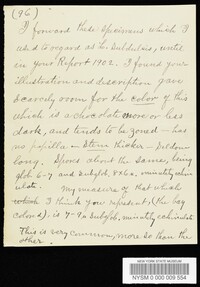 (96)
I forward these specimens which I
used to regard as the subdulcis, until
in your Report 1902. I found your
illustration and description gave
scarcely room for the color of this
which is a chocolate more or less
dark, and tends to be zoned — has
no papilla — Stems thicker — seldom
long. Spores about the same, being
glob 6-7 and subglob, 8x6a. minutely echin-
ulate.
My measure of that which
which I think you represent, (the bay
colors), is 7-9a subglob, minutely echinulate.
This is very common, more so than the
other.
NEW YORK STATE MUSEUM
NYSM 0 000 009 554